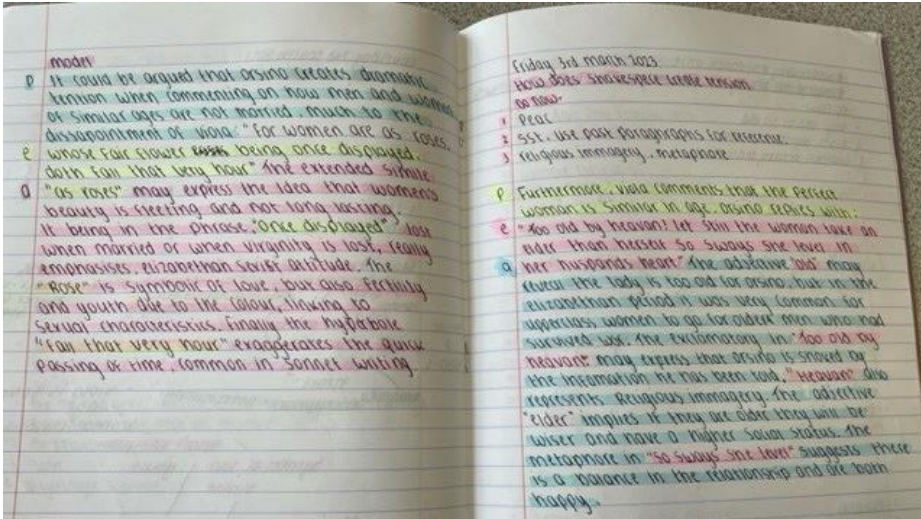 model
p It could be argued that orsino creates dramatic
tention when commenting on how men and women
of similar ages are not married, much to the
dissapointment of viola. "For women are as roses,
e whose fair flower being once displayed,
doth fall that very hour" The extended simile
a "as roses" may express the idea that women's
beauty is fleeting and not long lasting.
It being in the phrase, "once displayed" lose
when married or when virginity is lost, really
emphasises, elizabethan sexist attitude. The
"Rose" is symbolic of love, but also fertility
and youth due to the colour, linking to
sexual characteristics. Finally the hyperbole
"fall that very hour" exaggerates the quick
passing of time, common in sonnet writing
Friday 3rd march 2023
How does shakespeare create tension
do now.
1 Peac
2 SSt. use past paragraphs for reference.
3 religous immagery, metaphore
p Furthermore, viola comments that the perfect
woman is similar in age. orsino replies with:
e "Too old by heavan! let still the woman take an
elder than herself. So sways she level in
a her husbands heart" The adjective "old" may
reveal the lady is too old for orsino, but in the
elizabethan period it was very common for
upperclass women to go for older men who had
survived The exclamatory in "Too old by
heavan!" may express that orsino is shoved by
the infomation he has been told. "Heavan" also
represents Religous immagery. The adjective
"elder" implies if they are older they will be
wiser and have a higher social status. The
metaphore in "so sways she level" suggests there
is a balance in the relationship and are both
happy.